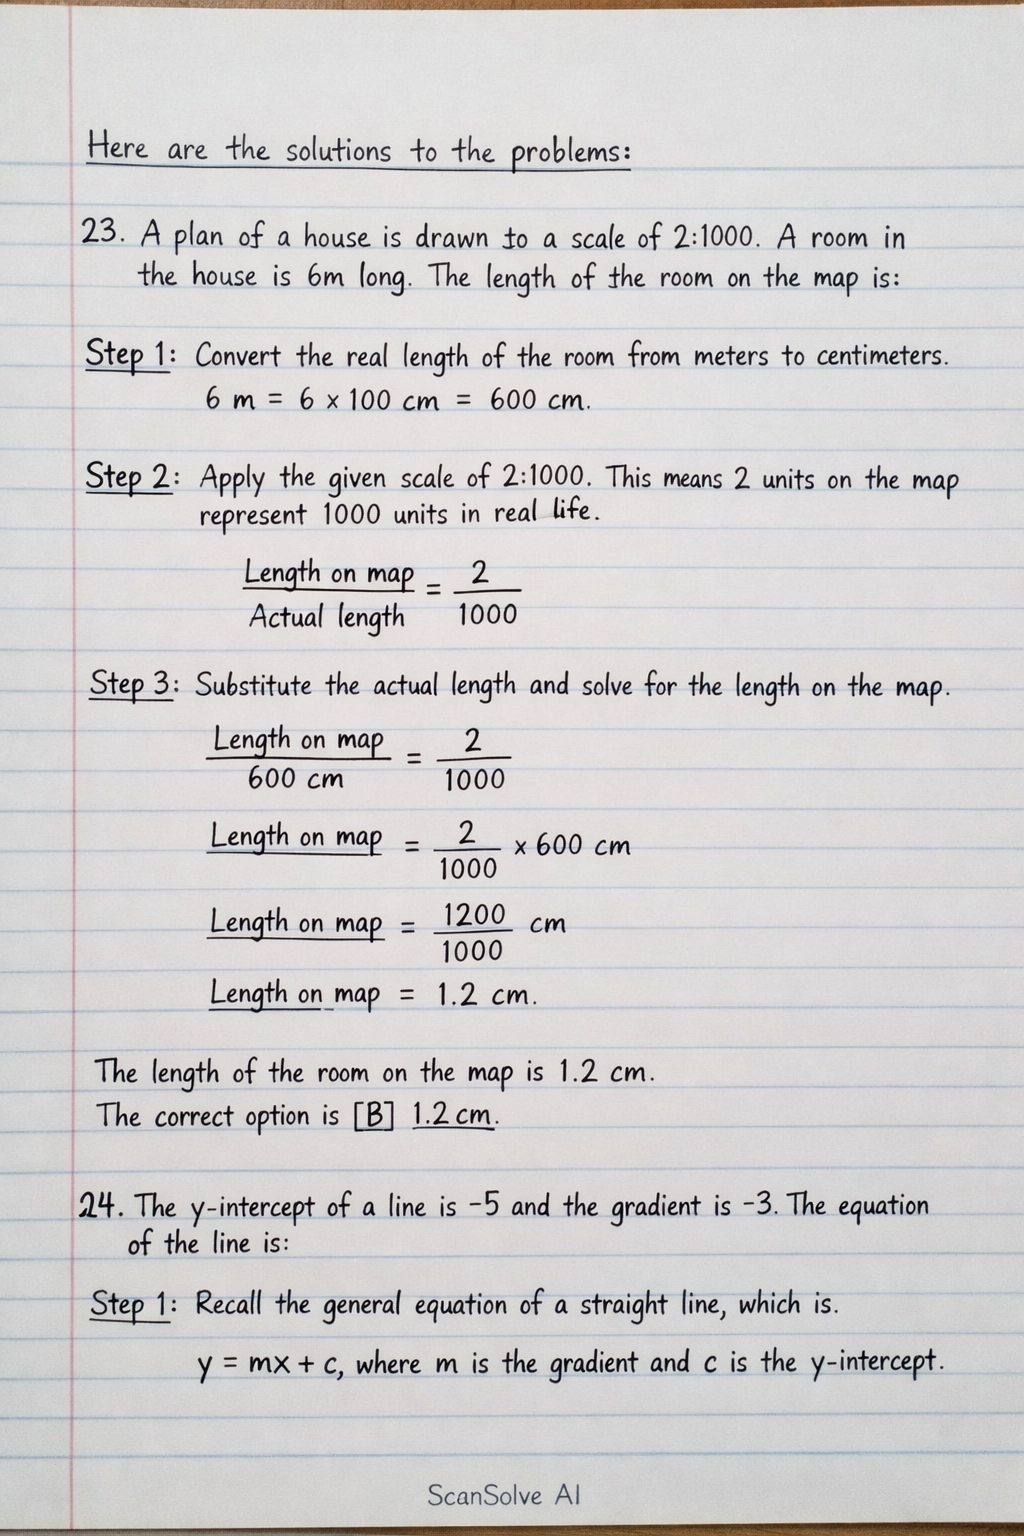 Here are the solutions to the problems:
23. A plan of a house is drawn to a scale of 2:1000. A room in
the house is 6m long. The length of the room on the map is:
Step 1: Convert the real length of the room from meters to centimeters.
6 m = 6 x 100 cm = 600 cm.
Step 2: Apply the given scale of 2:1000. This means 2 units on the map
represent 1000 units in real life.
Length on map / Actual length = 2 / 1000
Step 3: Substitute the actual length and solve for the length on the map.
Length on map / 600 cm = 2 / 1000
Length on map = 2 / 1000 x 600 cm
Length on map = 1200 / 1000 cm
Length on map = 1.2 cm.
The length of the room on the map is 1.2 cm.
The correct option is [B] 1.2 cm.
24. The y-intercept of a line is -5 and the gradient is -3. The equation
of the line is:
Step 1: Recall the general equation of a straight line, which is.
y = mx + c, where m is the gradient and c is the y-intercept.
ScanSolve AI